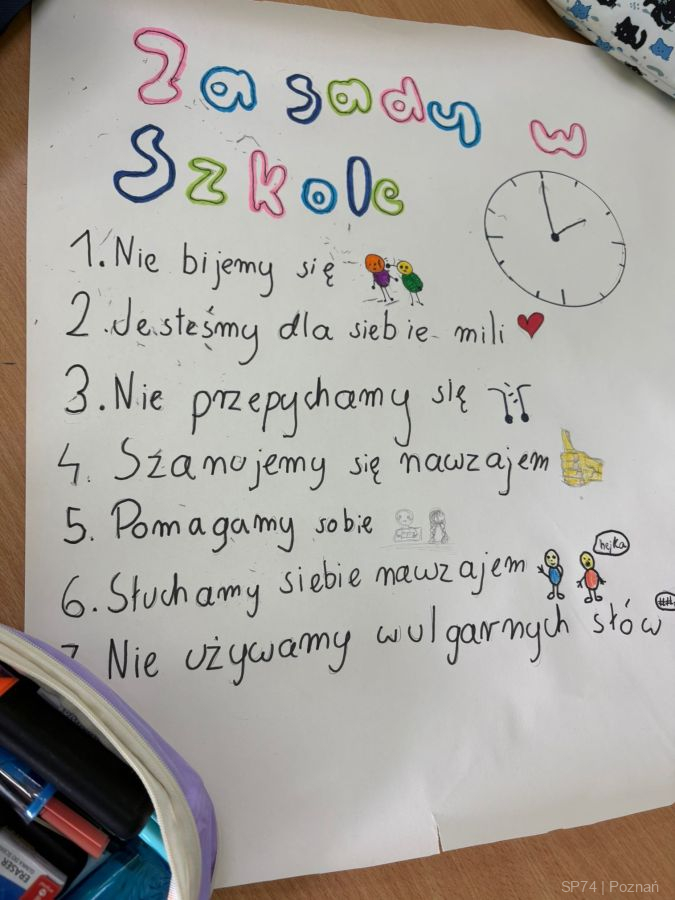 Zasady w
Szkole
1. Nie bijemy się
2. Jesteśmy dla siebie mili
3. Nie przepychamy się
4. Szanujemy się nawzajem
5. Pomagamy sobie
6. Słuchamy siebie nawzajem
hejka
7. Nie używamy wulgarnych słów
##
ERASER
SP74 | Poznań